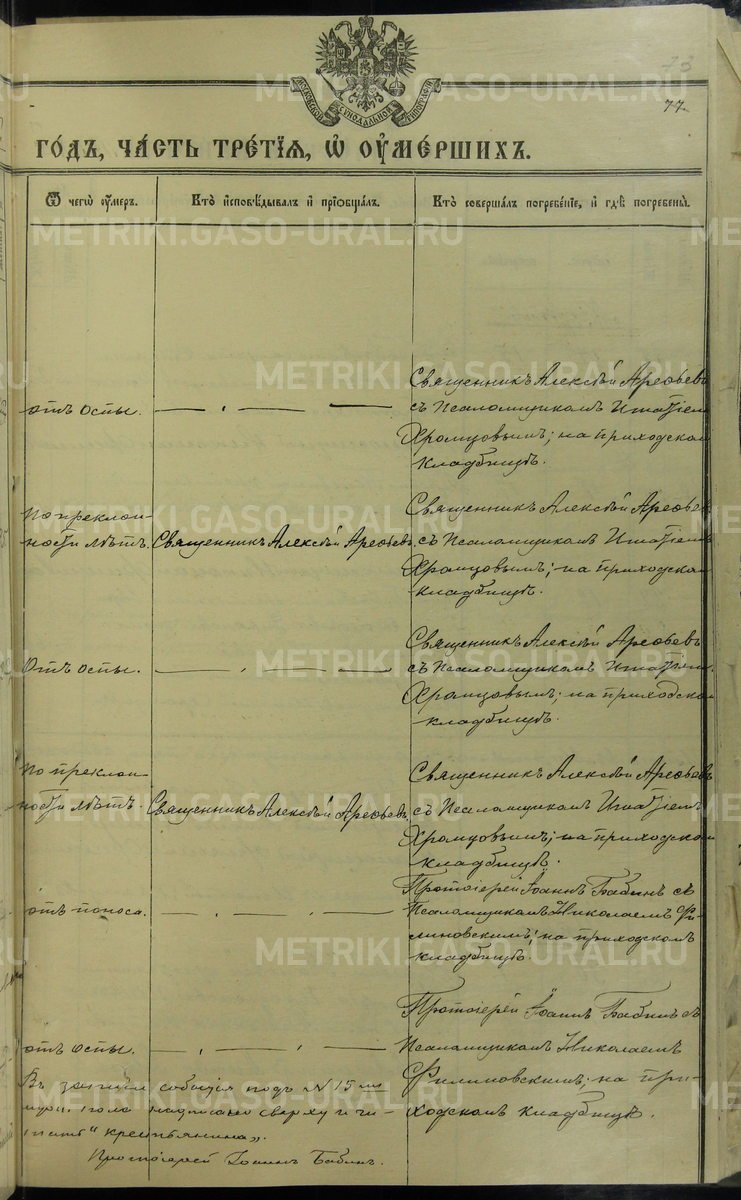 МОСКОВСКОЙ СѴНОДАЛЬНОЙ ТИПОГРАФІИ
73
77.
METRIKI.GASO-URAL.RU
го́дъ, ча́сть тре́тїѧ, ѡ҆ ᲂу҆ме́ршихъ.
Ѿ чегѡ̀ ᲂу҆́меръ.
Кто̀ и҆сповѣ́дывалъ и҆ прїѡбща́лъ.
Кто̀ соверша́лъ погребе́нїе, и҆ гдѣ̀ погребены̀.
METRIKI.GASO-URAL.RU
METRIKI.GASO-URAL.RU
Священникъ Алексѣй Арефьевъ
отъ оспы.
съ Псаломщикомъ Игнатіемъ
Хромцовымъ; на приходском
кладбищѣ.
По преклон-
ности лѣтъ.
Священникъ Алексѣй Арефьевъ
Священникъ Алексѣй Арефьев
съ Псаломщикомъ Игнатіемъ
Хромцовымъ; на приходском
кладбищѣ.
METRIKI.GASO-URAL.RU
Отъ оспы.
Священникъ Алексѣй Арефьевъ
съ Псаломщикомъ Игнатіем
Хромцовымъ; на приходском
кладбищѣ.
METRIKI.GASO-URAL.RU
По преклон-
ности лѣтъ.
Священникъ Алексѣй Арефьевъ
Священникъ Алексѣй Арефьевъ
съ Псаломщикомъ Игнатіемъ
Хромцовымъ; на приходском
кладбищѣ.
METRIKI.GASO-URAL.RU
отъ поноса.
Протоіерей Іоаннъ Бабинъ съ
Псаломщикомъ Николаемъ Фи-
линовскимъ; на приходскомъ
кладбищѣ.
METRIKI.GASO-URAL.RU
отъ оспы.
Протоіерей Іоаннъ Бабинъ съ
Псаломщикомъ Николаемъ
Филиновскимъ; на при-
ходскомъ кладбищѣ.
METRIKI.GASO-URAL.RU
Въ записи событія подъ № 15 м
пола надписано сверху и чи-
тать "крестьянина".
Протоіерей Іоаннъ Бабинъ.